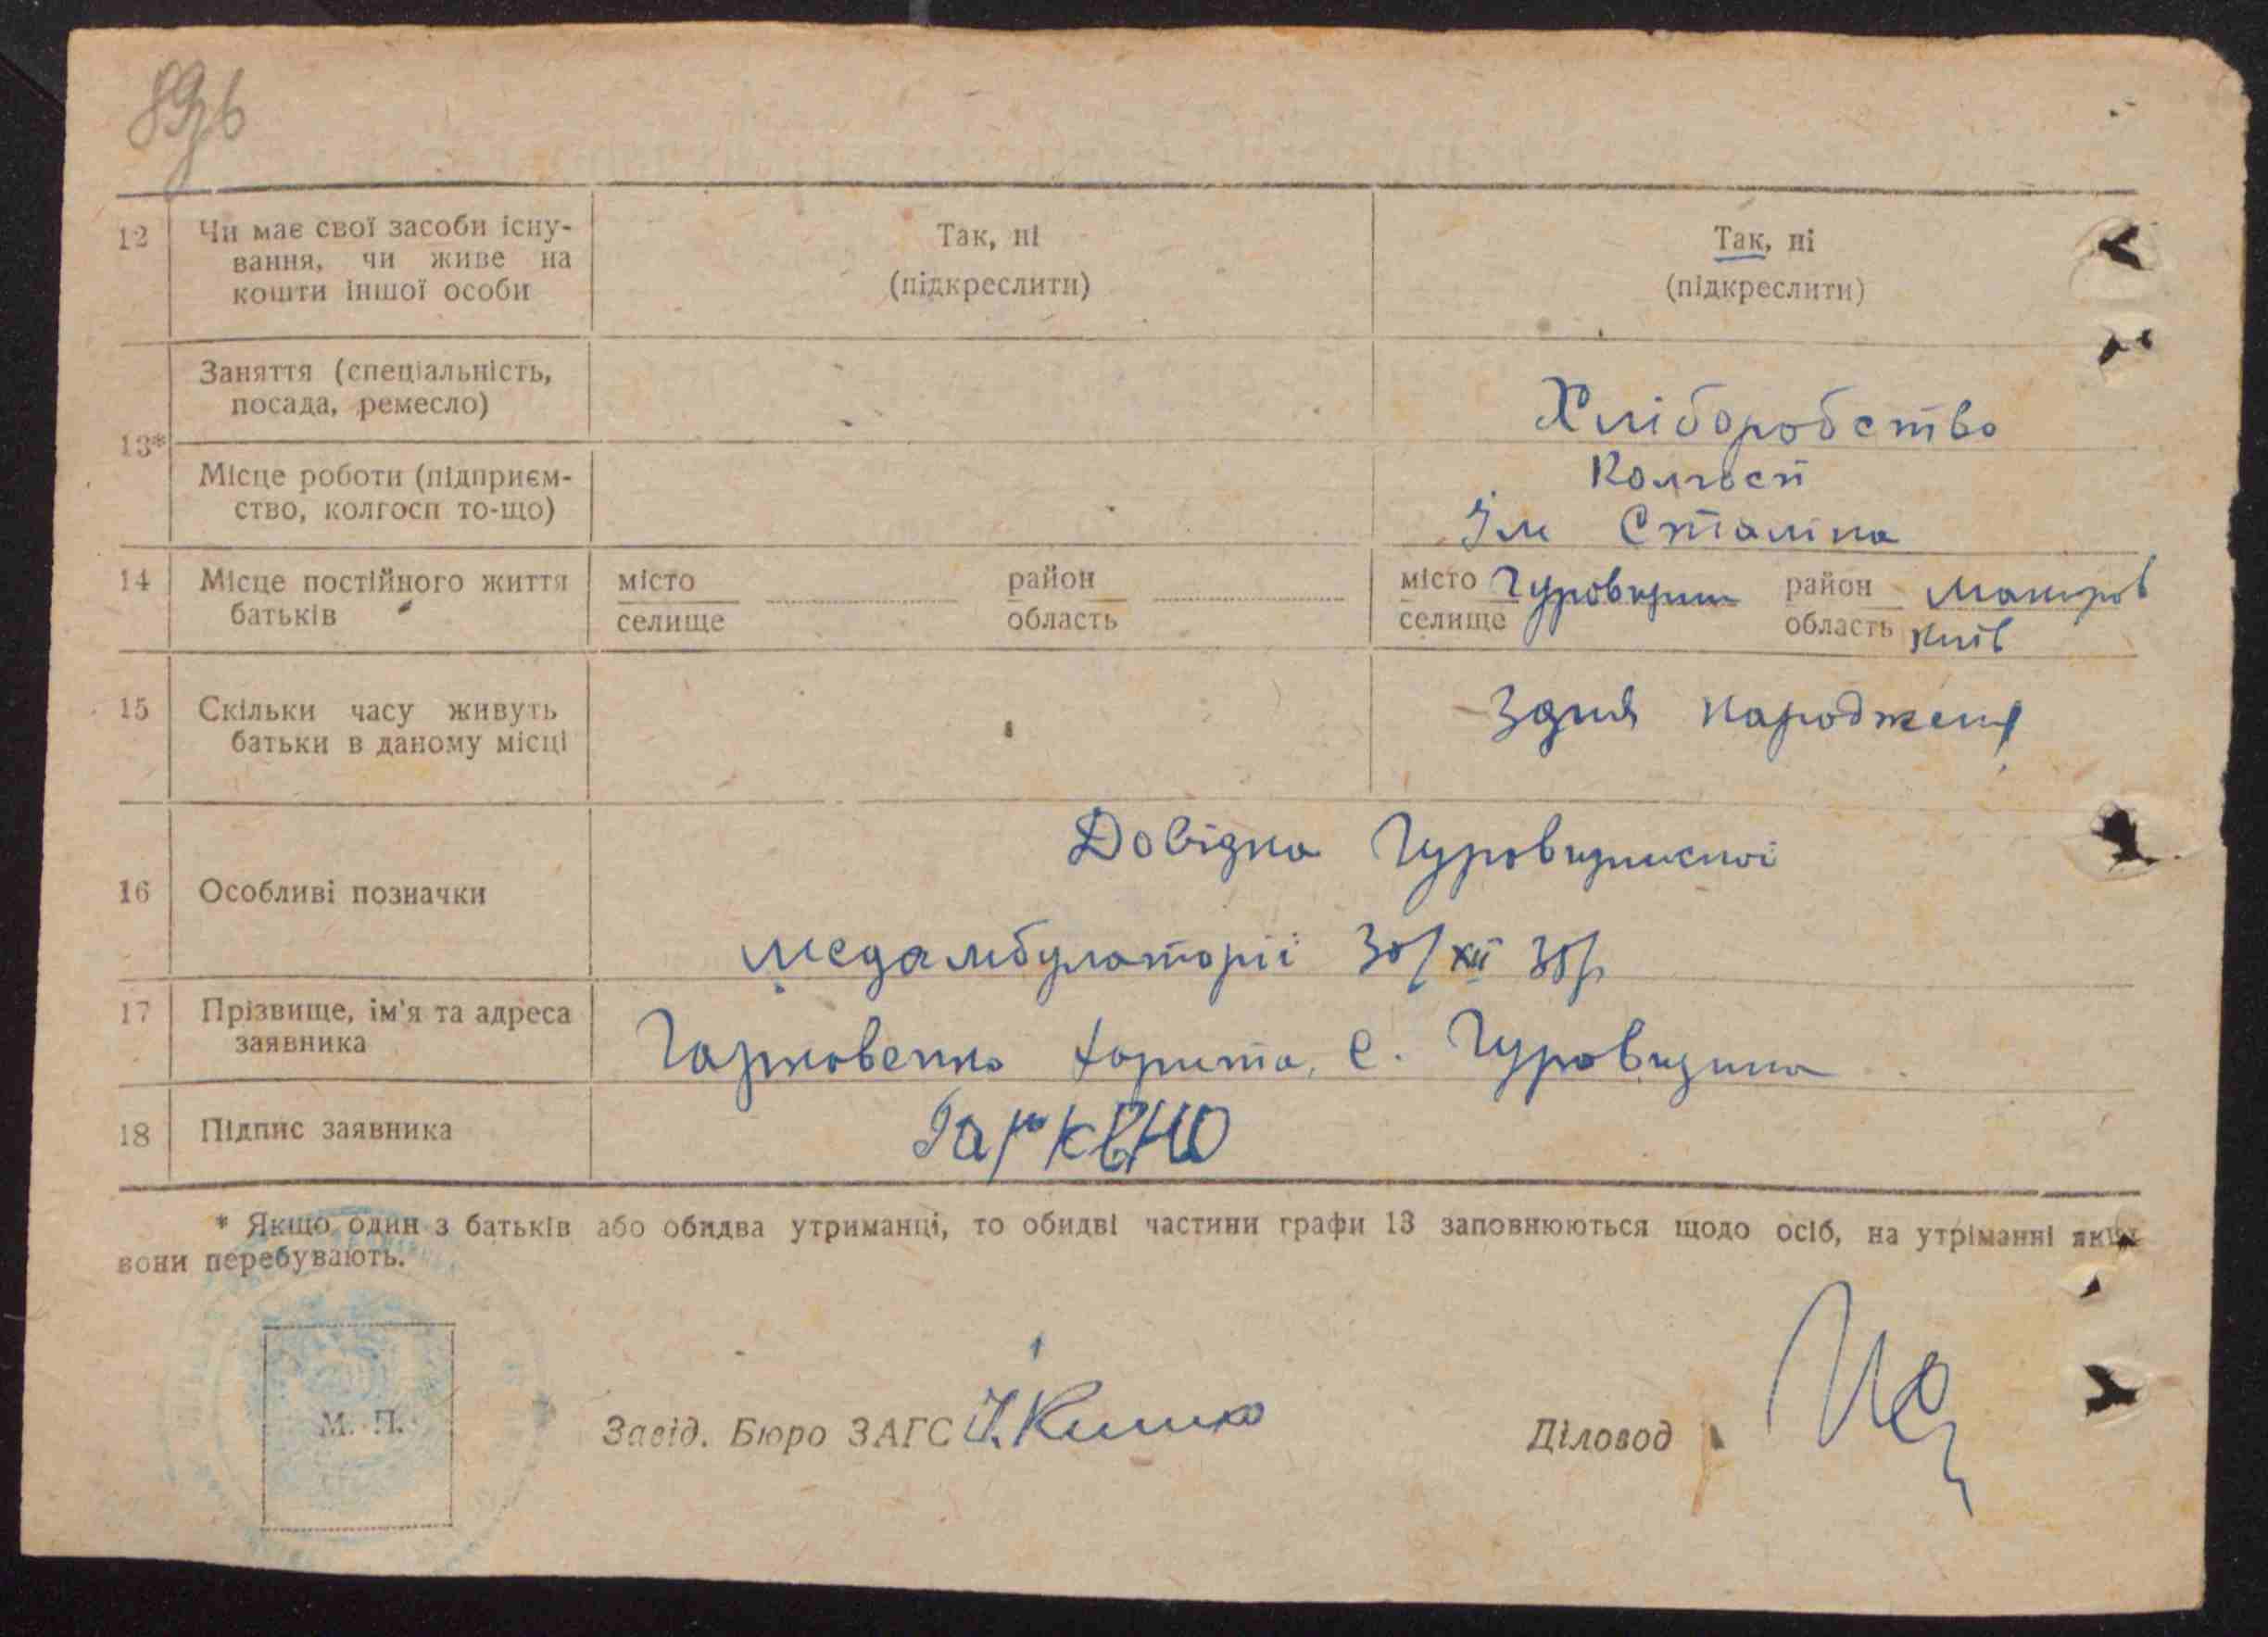 89зв
12 Чи має свої засоби існу-
вання, чи живе на
кошти іншої особи
Так, ні
(підкреслити)
Так, ні
(підкреслити)
13*
Заняття (спеціальність,
посада, ремесло)
Хліборобство
Місце роботи (підприєм-
ство, колгосп то-що)
Колгосп
Ім Сталіна
14 Місце постійного життя
батьків
місто
селище
район
область
місто
селище
Гуровщин
район
область
Макаров
Київ
15 Скільки часу живуть
батьки в даному місці
Здня народженя
16 Особливі позначки
Довідка Гуровщинскої
медамбулаторії 30/XII 38р
17 Прізвище, ім'я та адреса
заявника
Гарковенко Харита, с. Гуровщина
18 Підпис заявника
Гарквно
* Якщо один з батьків або обидва утриманці, то обидві частини графи 13 заповнюються щодо осіб, на утріманні яких
вони перебувають.
М. П.
Завід. Бюро ЗАГС
Діловод